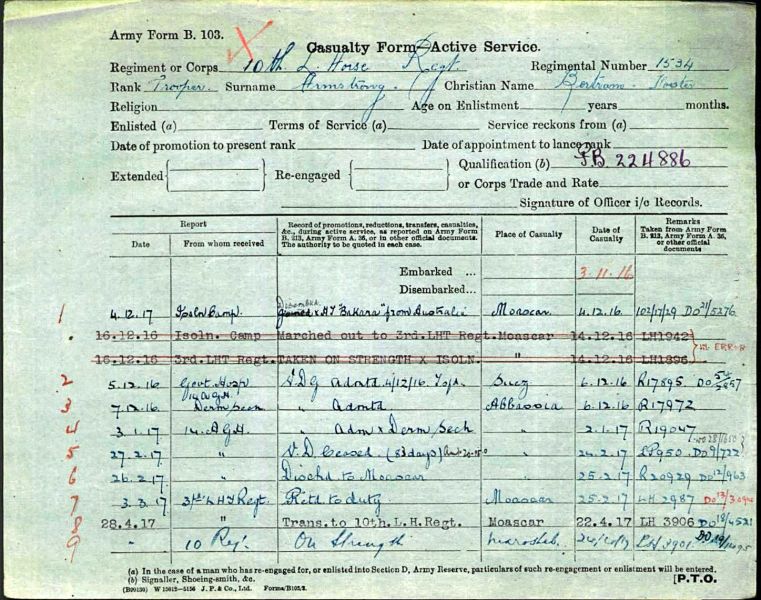 Army Form B. 103.
Casualty Form—Active Service.
Regiment or Corps 10th L. Horse Regt. Regimental Number 1534
Rank Trooper. Surname Armstrong. Christian Name Bertram
Religion Age on Enlistment years months.
Enlisted (a) Terms of Service (a) Service reckons from (a)
Date of promotion to present rank Date of appointment to lance rank
Extended Re-engaged Qualification (b) F.B. 224886
or Corps Trade and Rate
Signature of Officer i/c Records.
Report
Date From whom received
Record of promotions, reductions, transfers, casualties,
&c., during active service, as reported on Army Form
B. 213, Army Form A. 36, or in other official documents.
The authority to be quoted in each case.
Place of Casualty
Date of
Casualty
Remarks
Taken from Army Form
B. 213, Army Form A. 36,
or other official
documents
Embarked ... 3.11.16
Disembarked...
1 4.12.17 Isoln Camp. HT "Bakara" from Australia Moascar 4.12.16. 102/17/29 DO 21/5276
16.12.16 Isoln. Camp Marched out to 3rd.LHT Regt. Moascar 14.12.16 LH1942
16.12.16 3rd.LHT Regt. TAKEN ON STRENGTH X ISOLN. " 14.12.16 LH1896 in ERROR
2 5.12.16 Govt. Hosp V.D.G Admtd 4/12/16. Suez 6.12.16 R17595
3 7.12.16 14 A.G.H. Derm Secn " Admtd Abbassia 6.12.16 R17972
4 3.1.17 14 A.G.H. " Adm x Derm Sech " 2.1.17 R19047
5 27.2.17 " V.D. Ceased (83 days) " 24.2.17 DO 9/722
6 26.2.17 " Dischd to Moascar 25.2.17 R20929 DO 12/963
7 3.3.17 3rd LHT Regt. Retd to duty Moascar 25.2.17 LH 2987
8 28.4.17 " Trans. to 10th.L.H.Regt. Moascar 22.4.17 LH 3906 DO 18/4521
9 " 10 Reg. On Strength LH 3901
(a) In the case of a man who has re-engaged for, or enlisted into Section D, Army Reserve, particulars of such re-engagement or enlistment will be entered.
(b) Signaller, Shoeing-smith, &c.
[P.T.O.